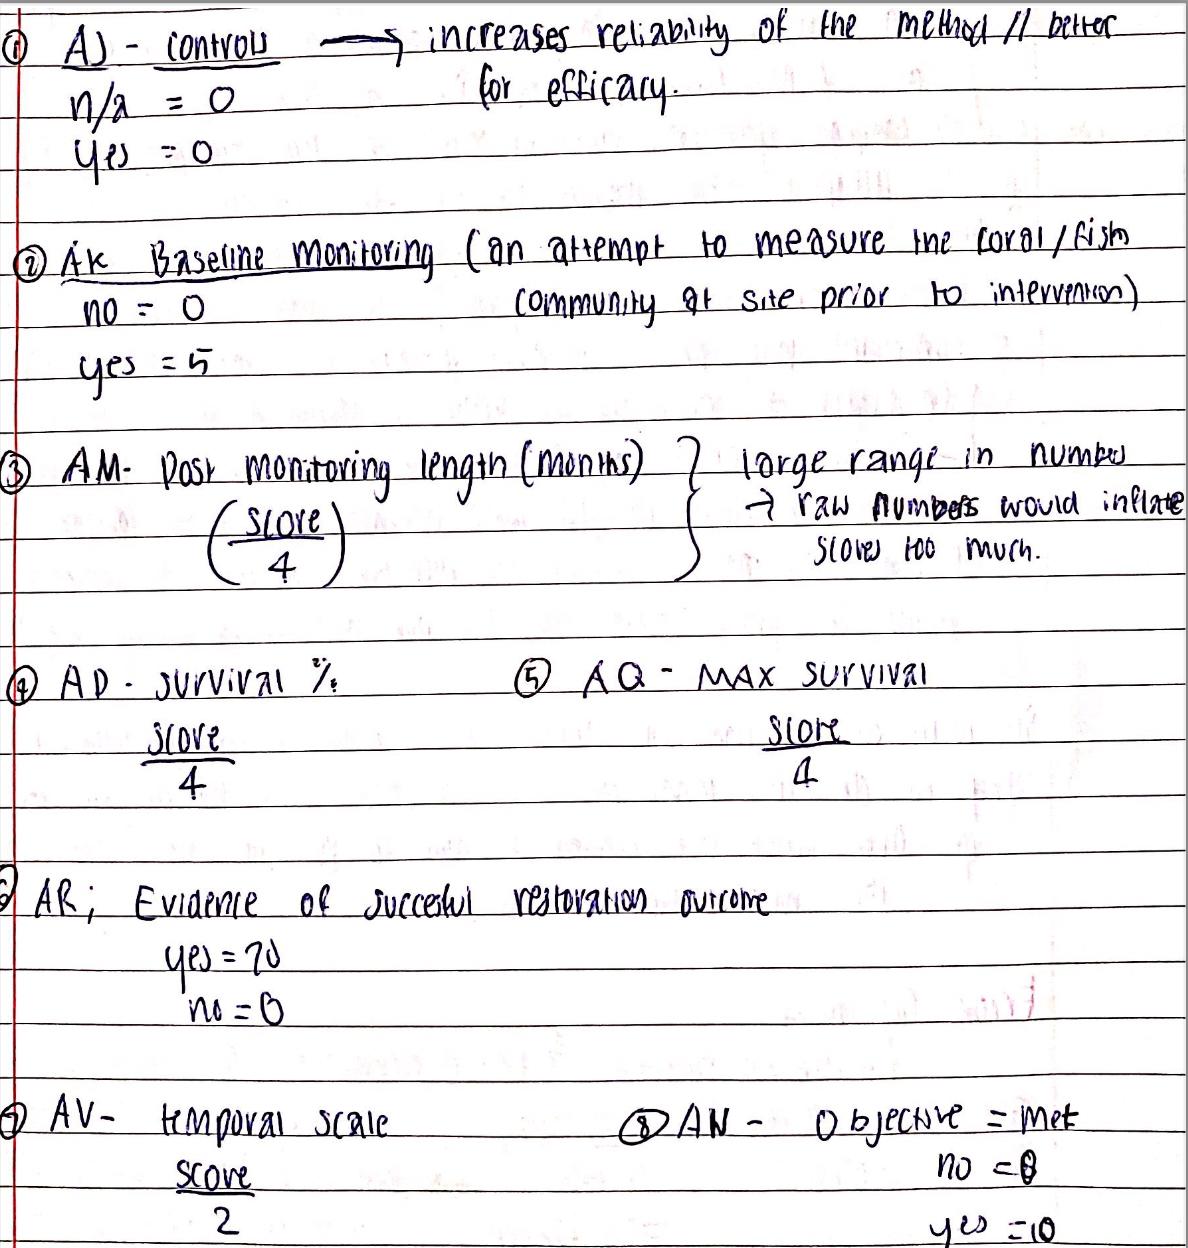 ① AJ - controls → increases reliability of the method // better
for efficacy.
n/a = 0
yes = 0
② AK Baseline monitoring (an attempt to measure the coral/fish
community at site prior to intervention)
no = 0
yes = 5
③ AM- Post monitoring length (months) } large range in numbers
→ raw numbers would inflate
scores too much.
(score
4)
④ AP - survival %
score
4
⑤ AQ - MAX survival
score
4
⑥ AR; Evidence of succesful restoration outcome
yes = 20
no = 0
⑦ AV- temporal scale
score
2
⑧ AN - Objective = met
no = 0
yes = 10